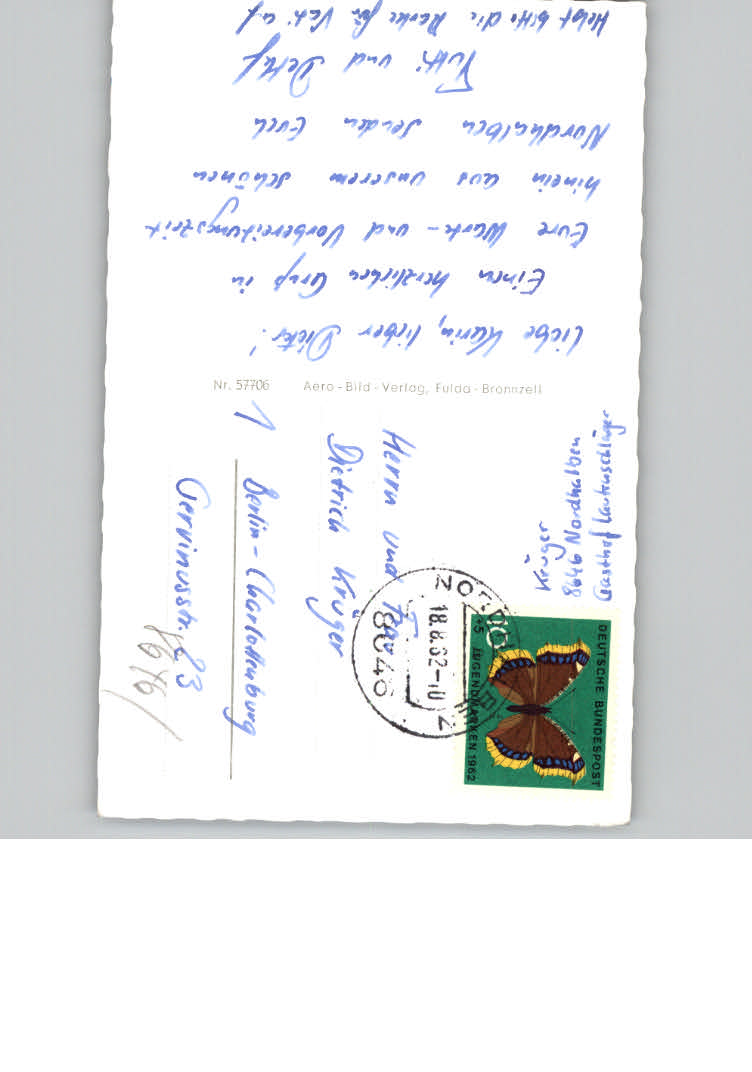 Liebe Karin, lieber Dieter!
Einen herzlichen Gruß in
Eure Warte- und Vorbereitungszeit
hinein aus unserem schönen
Nordhalben senden Euch
und Detlef
Hebt bitte die Marke für Vati auf
Nr. 57706 Aero-Bild-Verlag, Fulda-Bronnzell
Krüger
8646 Nordhalben
Gasthof Lautenschläger
Herrn und Frau
Dietrich Krüger
1
Berlin-Charlottenburg
Gervinusstr. 23
DEUTSCHE BUNDESPOST
10
+5
JUGENDMARKEN 1962
18.8.62-10
8646